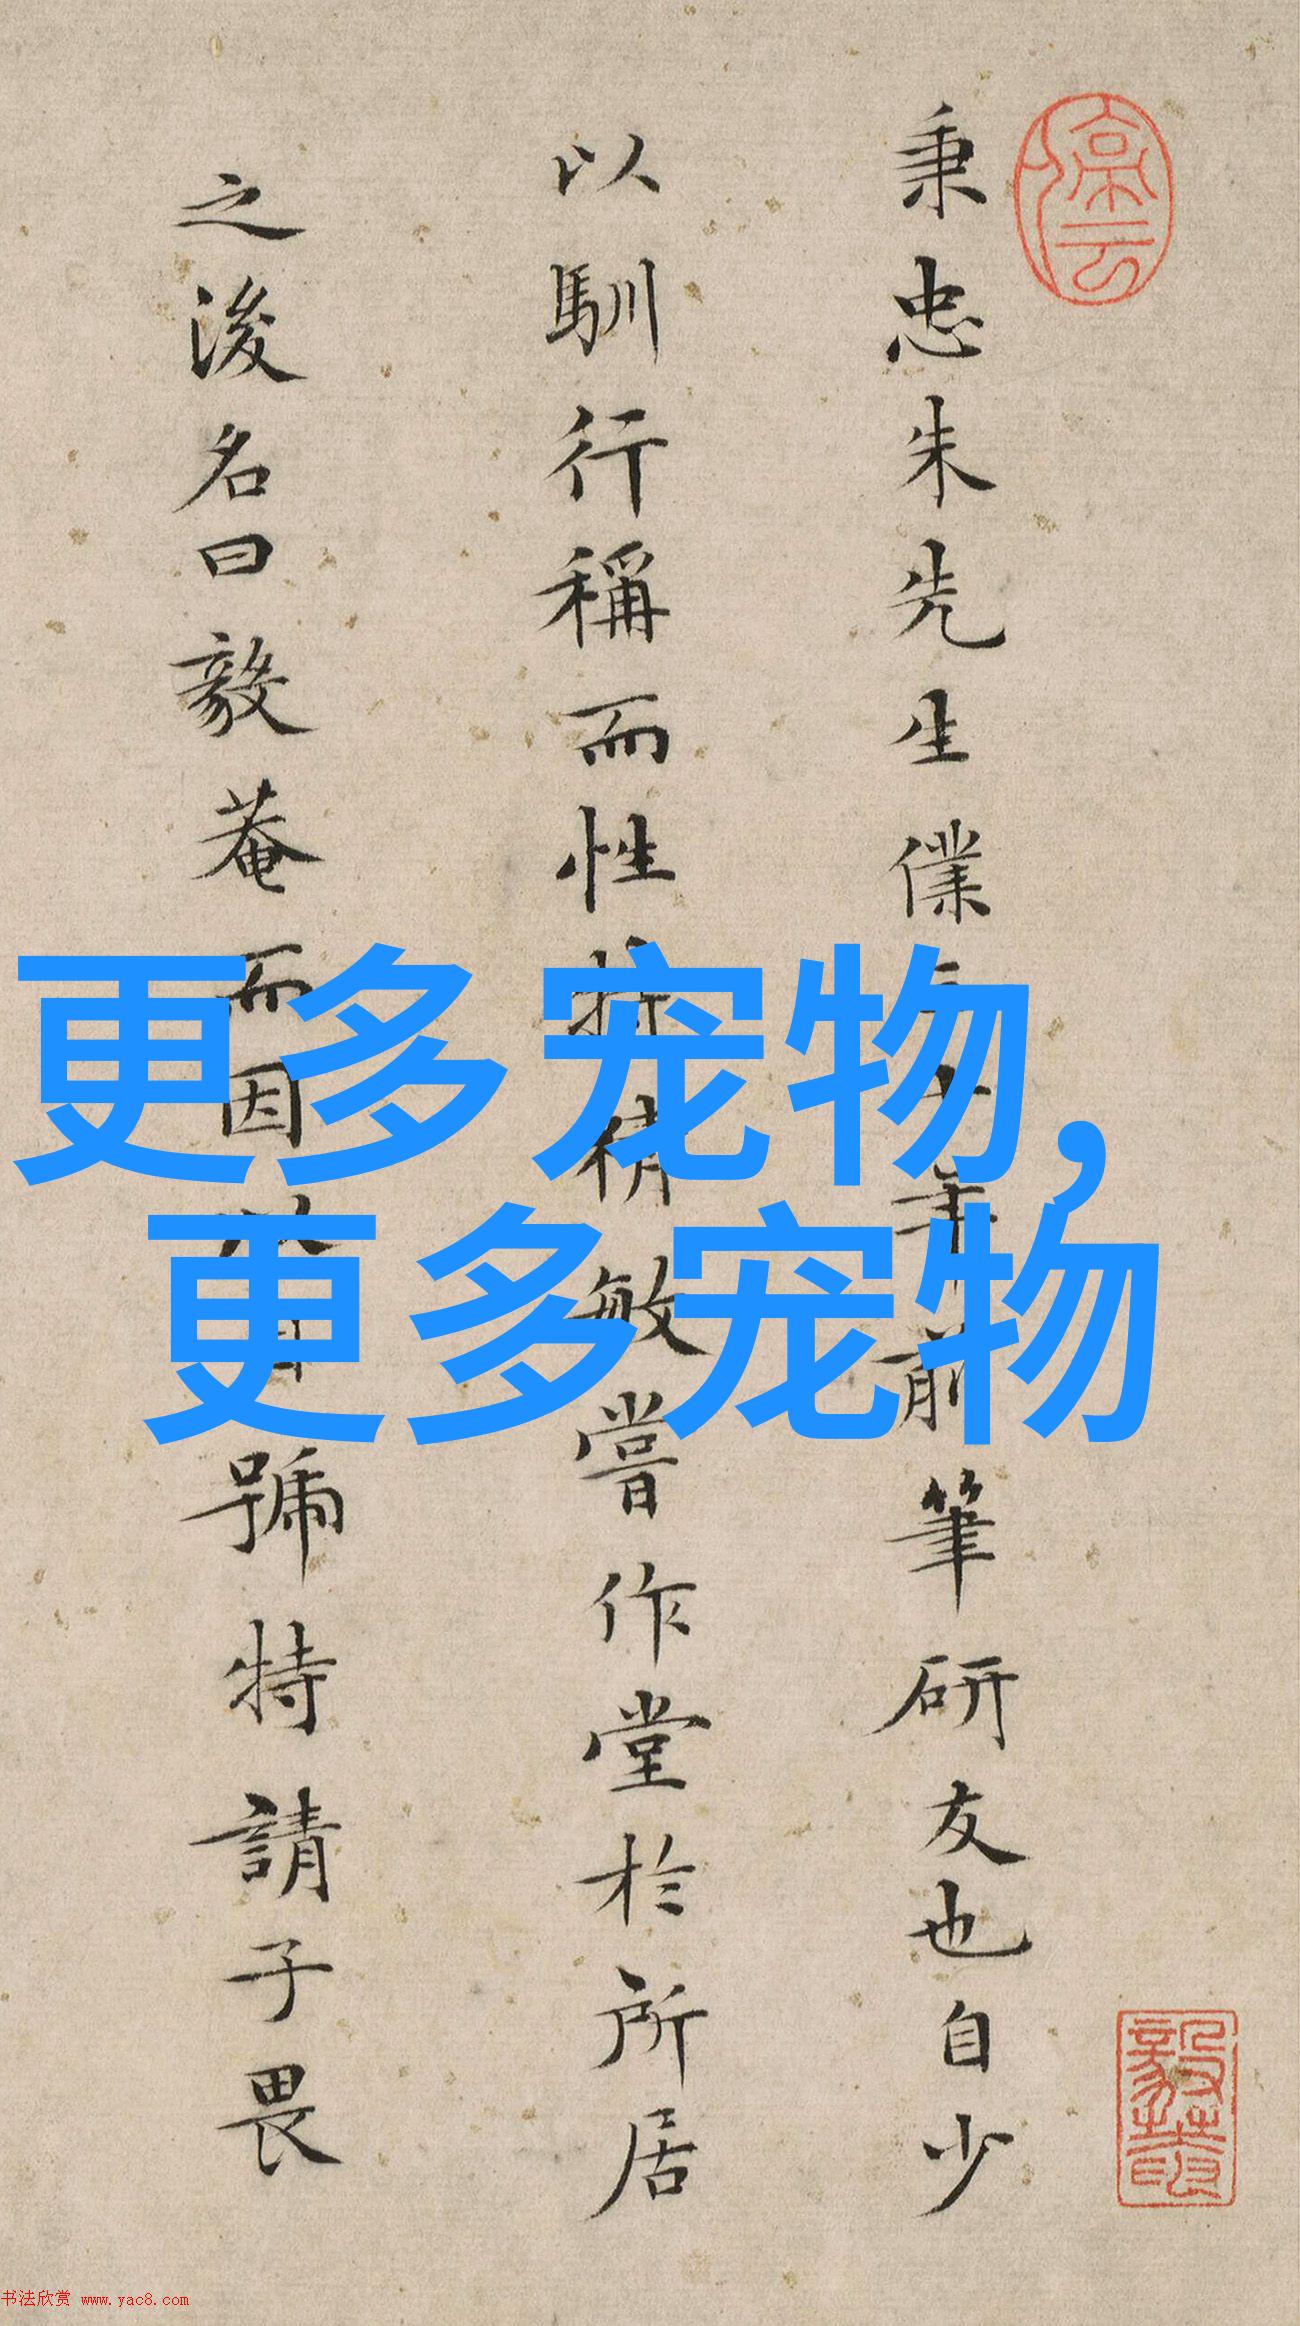 秉忠朱先生僕三十年前筆研友也自少
以馴行稱而性特精敏嘗作堂於所居
之浚名曰毅菴而因以自號特請子畏
更多宠物,
更多宠物
书法欣赏 www.yac8.com